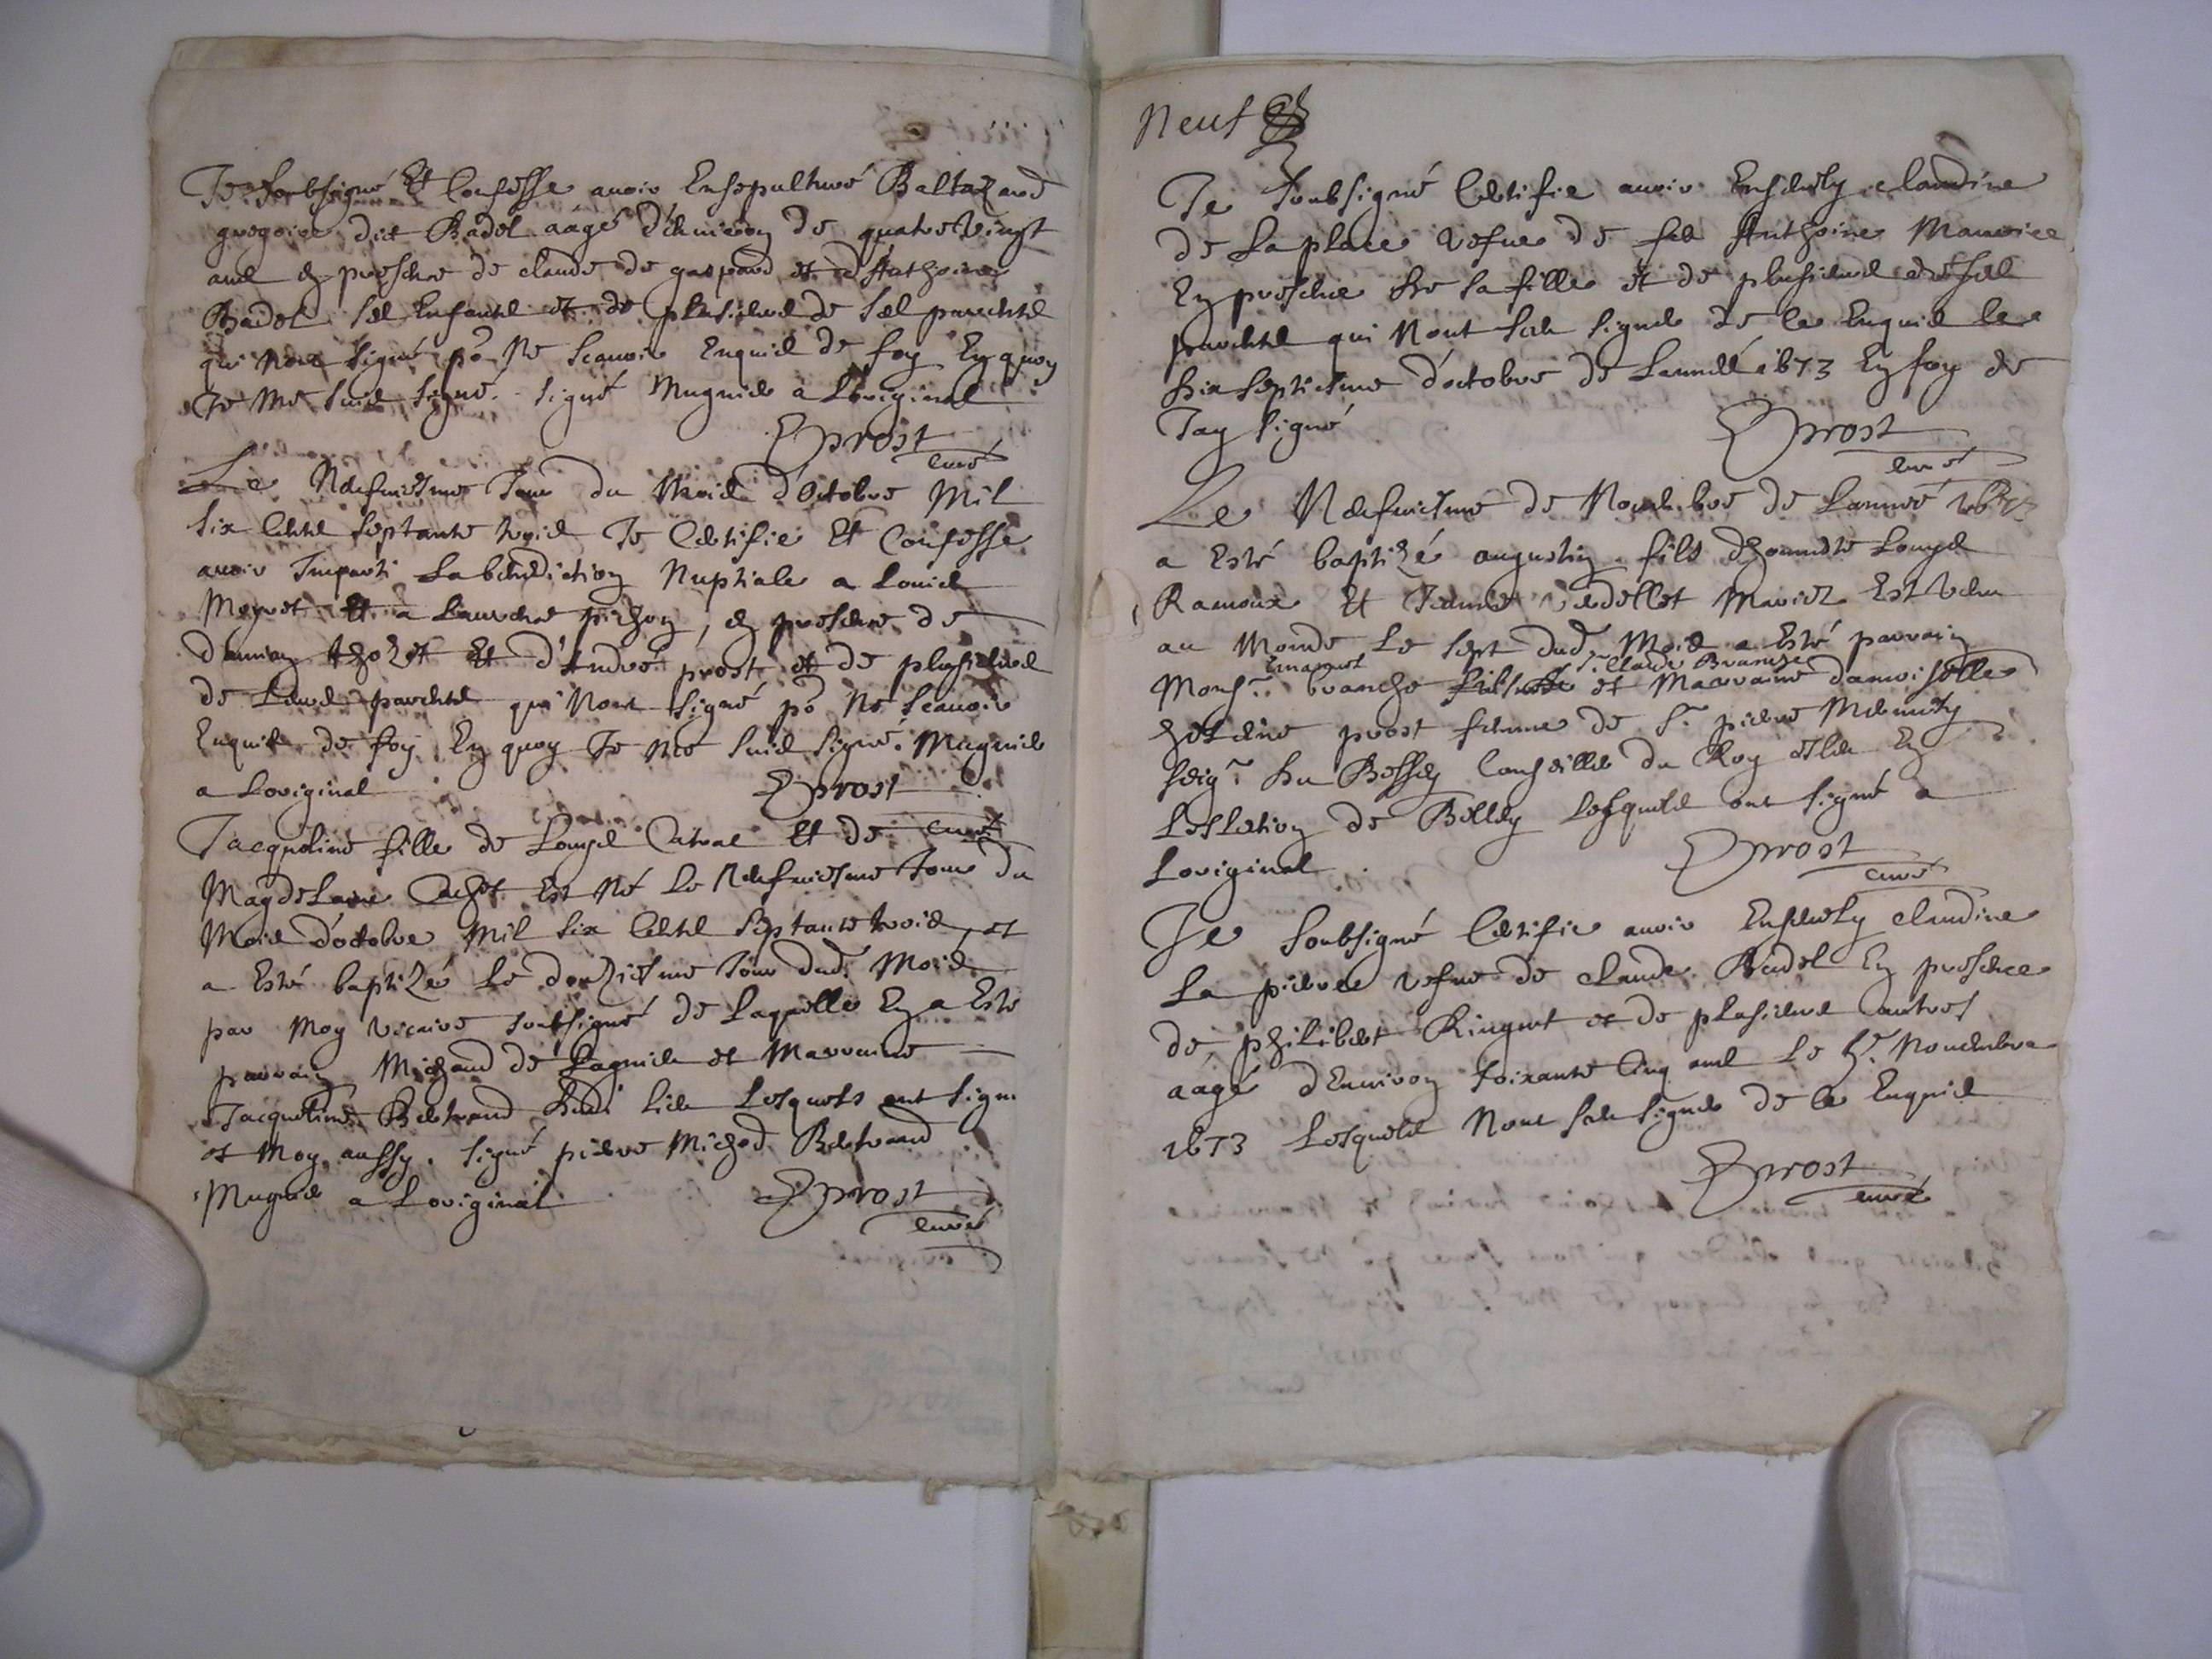 Je soubsigné Et Confesse avoir Ensepulturé Baltazard
gregoire dict Badel aagé d'environ de quatre vingt
ans En presence de claude de gaspard et d'Anthoine
Badel ses Enfants et de plusieurs de ses parents
qui n'ont signé po.r Ne Scavoir Enquis de foy En quoy
Je Me suis signé. signé Mugnier a Loriginal
Prost
curé
Le Neufviesme Jour du Mois d'Octobre Mil
six Cents septante trois Je Certifie Et Confesse
avoir Imparti La benediction Nuptiale a Louis
Meynet Et a Laurence pichon, en presence de
damian thozet Et d'Andre prost et de plusieurs
de Leurs parents qui N'ont signé po.r Ne Scavoir
Enquis de foy En quoy Je Me suis signé. Mugnier
a Loriginal Prost
curé
Jacqueline fille de Louys Et de
Magdelaine est Né Le Neufviesme Jour du
Mois d'octobre Mil six Cents septante trois, et
a Esté baptizé Le douziesme Jour dud. Mois
par Moy vicaire soubsigné de Laquelle En a Esté
parrain Michaud de Lagnieu et Marraine
Jacqueline Bertrand dud. Lieu Lesquels ont signé
et Moy aussy. signé pierre Michod Bertrand
Mugnier a Loriginal Prost
curé
Neuf
Je soubsigné Certifie avoir Ensevely claudine
de Laplace vefve de feu Anthoine Mauvice
En presence de sa fille et de plusieurs de ses
parents qui N'ont sceu signer de ce Enquis Le
dix septiesme d'octobre de L'année 1673 En foy de
J'ay signé Prost
curé
Le Neufviesme de Novembre de L'année 1673
a Esté baptizé augustin fils d'honneste Louys
Ramoux Et Jeanne Mariez Est venu
au Monde Le sept dud. Mois a Esté parrain
Mons.r branche et Marraine damoiselle
s.r Claude Branche
prost femme de s.r pierre
seig.r du Bessey Conseiller du Roy esleu En
L'eslection de Belley Lesquels ont signé a
Loriginal Prost
curé
Je soubsigné Certifie avoir Ensevely claudine
La pierre vefve de claude Badel En presence
de philibert Ringuet et de plusieurs autres
aagé d'Environ soixante Cinq ans Le 9.e Novembre
1673 Lesquels N'ont sceu signer de ce Enquis
Prost
curé